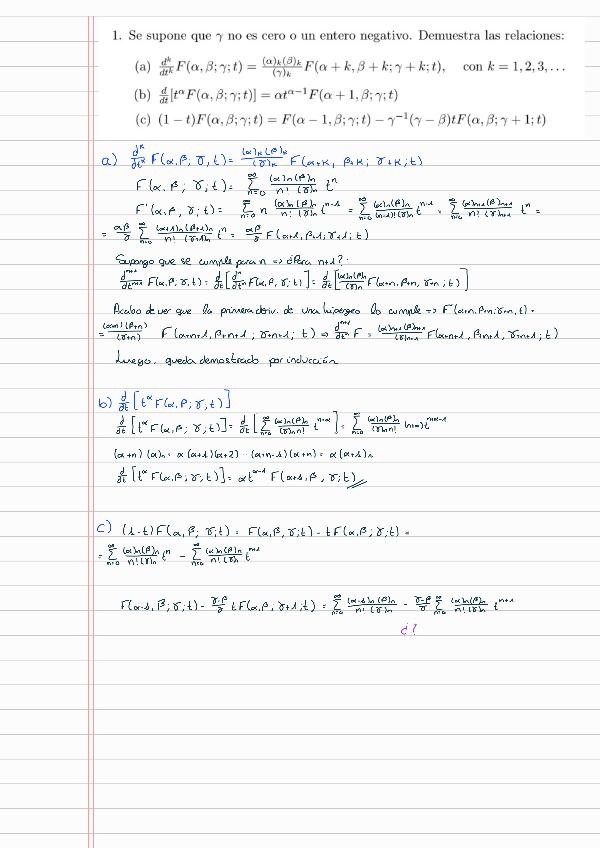 1. Se supone que γ no es cero o un entero negativo. Demuestra las relaciones:
(a) d^k/dt^k F(α, β; γ; t) = (α)_k(β)_k/(γ)_k F(α + k, β + k; γ + k; t), con k = 1, 2, 3, ...
(b) d/dt [t^α F(α, β; γ; t)] = αt^{α−1}F(α + 1, β; γ; t)
(c) (1 − t)F(α, β; γ; t) = F(α − 1, β; γ; t) − γ^{−1}(γ − β)tF(α, β; γ + 1; t)
a) d^k/dt^k F(α, β; γ, t) = (α)_k(β)_k/(γ)_k F(α+k, β+k; γ+k; t)
F(α, β; γ; t) = Σ_{n=0}^∞ (α)_n(β)_n/n!(γ)_n t^n
F'(α, β, γ; t) = Σ_{n=0}^∞ n (α)_n(β)_n/n!(γ)_n t^{n-1} = Σ_{n=1}^∞ (α)_n(β)_n/(n-1)!(γ)_n t^{n-1} = Σ_{n=0}^∞ (α)_{n+1}(β)_{n+1}/n!(γ)_{n+1} t^n =
= αβ/γ Σ_{n=0}^∞ (α+1)_n(β+1)_n/n!(γ+1)_n t^n = αβ/γ F(α+1, β+1; γ+1; t)
Supongo que se cumple para n => ¿Para n+1?:
d^{n+1}/dt^{n+1} F(α, β; γ; t) = d/dt [d^n/dt^n F(α, β, γ; t)] = d/dt [(α)_n(β)_n/(γ)_n F(α+n, β+n, γ+n; t)]
Acabo de ver que la primera deriv. de una hipergeo lo cumple => F'(α+n, β+n; γ+n, t) =
= (α+n)(β+n)/(γ+n) F(α+n+1, β+n+1; γ+n+1; t) => d^{n+1}/dt^n F = (α)_{n+1}(β)_{n+1}/(γ)_{n+1} F(α+n+1, β+n+1, γ+n+1; t)
Luego, queda demostrado por inducción
b) d/dt [t^α F(α, β; γ; t)]
d/dt [t^α F(α, β; γ; t)] = d/dt [Σ_{n=0}^∞ (α)_n(β)_n/(γ)_n n! t^{n+α}] = Σ_{n=0}^∞ (α)_n(β)_n/(γ)_n n! (n+α) t^{n+α-1}
(α+n)(α)_n = α(α+1)(α+2)···(α+n-1)(α+n) = α(α+1)_n
d/dt [t^α F(α, β; γ; t)] = αt^{α-1} F(α+1, β, γ; t)
c) (1-t)F(α, β; γ; t) = F(α, β, γ; t) - tF(α, β; γ; t) =
= Σ_{n=0}^∞ (α)_n(β)_n/n!(γ)_n t^n - Σ_{n=0}^∞ (α)_n(β)_n/n!(γ)_n t^{n+1}
F(α-1, β; γ; t) - γ-β/γ tF(α, β, γ+1; t) = Σ_{n=0}^∞ (α-1)_n(β)_n/n!(γ)_n - γ-β/γ Σ_{n=0}^∞ (α)_n(β)_n/n!(γ)_n t^{n+1}
¿?